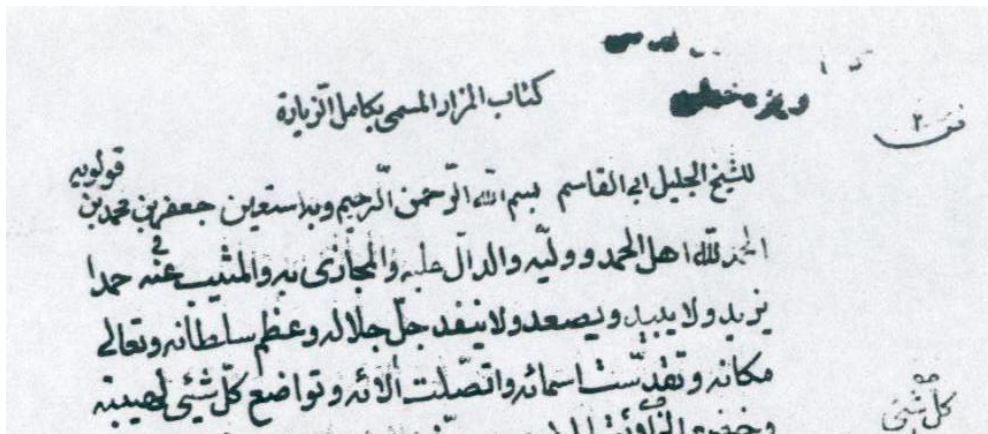 كتاب المزار المسمى بكامل الزيارة
للشيخ الجليل ابي القاسم بسم الله الرّحمن الرّحيم وبه استعين جعفر بن محمد بن
قولويه
الحمد لله اهل الحمد ووليّه والدالّ عليه والمجازى به والمثيب عنه حمدا
في
يزيد ولا يبيد ويصعد ولا ينفد جلّ جلاله وعظم سلطانه وتعالى
مكانه وتقدّست اسمائه واتّصلت آلائه وتواضع كلّ شيئي لهيبته
كلّ شيئي